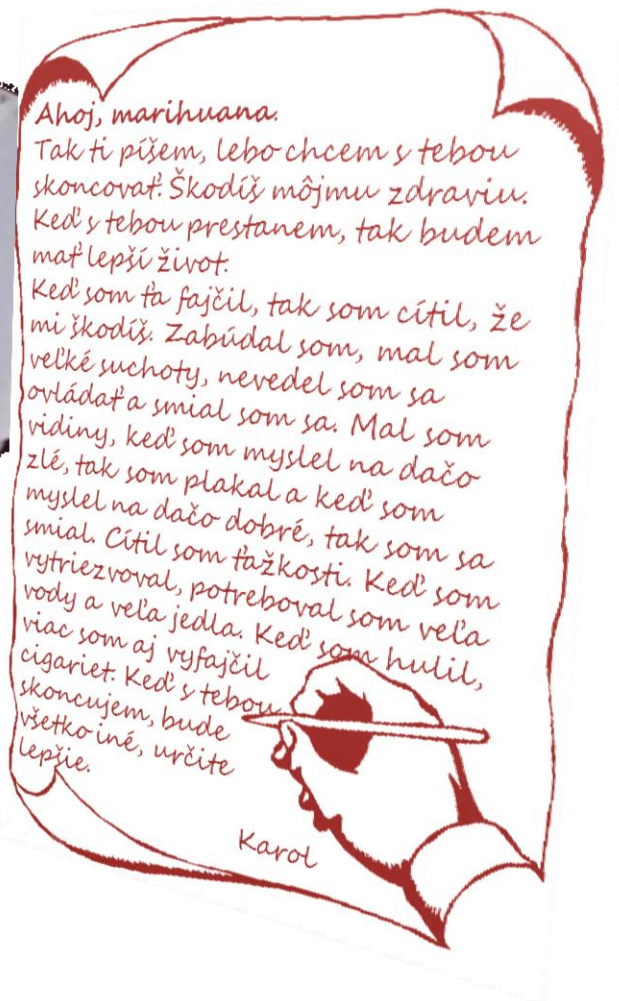 Ahoj, marihuana.
Tak ti píšem, lebo chcem s tebou
skoncovať. Škodíš môjmu zdraviu.
Keď s tebou prestanem, tak budem
mať lepší život.
Keď som ťa fajčil, tak som cítil, že
mi škodíš. Zabúdal som, mal som
veľké suchoty, nevedel som sa
ovládať a smial som sa. Mal som
vidiny, keď som myslel na dačo
zlé, tak som plakal a keď som
myslel na dačo dobré, tak som sa
smial. Cítil som ťažkosti. Keď som
vytriezvoval, potreboval som veľa
vody a veľa jedla. Keď som hulil,
viac som aj vyfajčil
cigariet. Keď s tebou
skoncujem, bude
všetko iné, určite
lepšie.
Karol